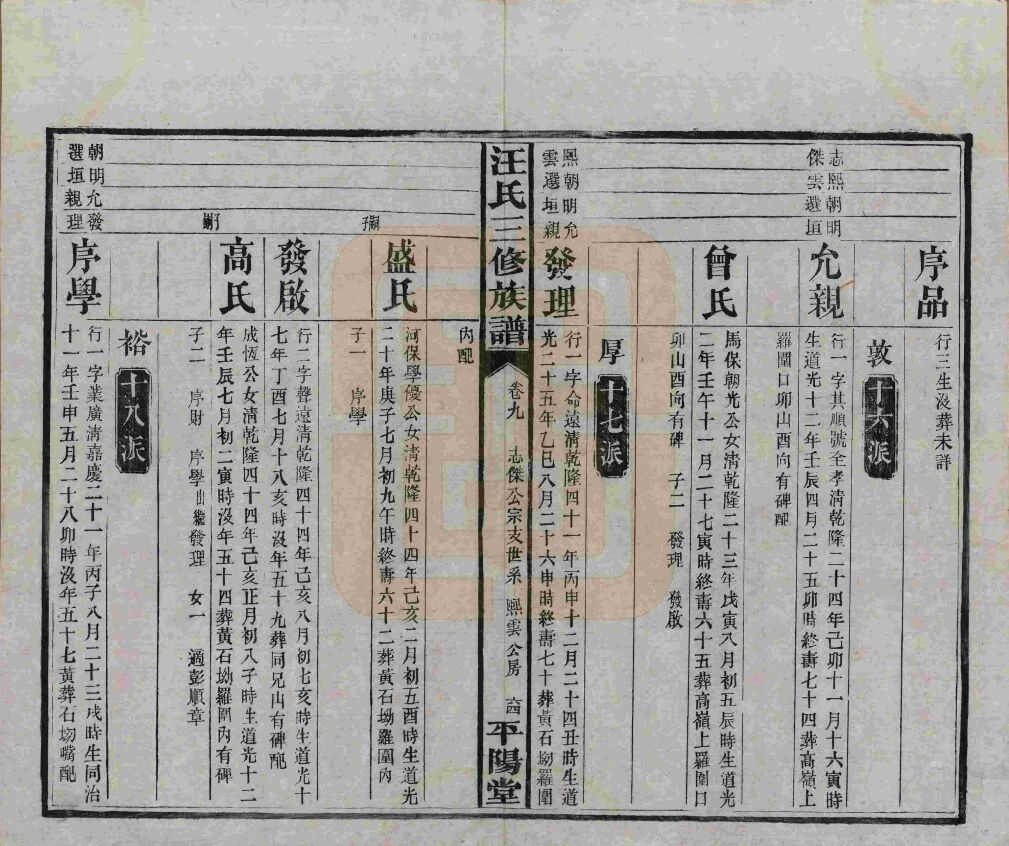 序品
行三生沒葬未詳
敦
十六派
志熙朝明
傑雲選垣
允親
行一字其順號全孝清乾隆二十四年己卯十一月十六寅時
生道光十二年壬辰四月二十五卯時終壽七十四葬高嶺上
羅圍口卯山酉向有碑配
曾氏
馬保朝光公女清乾隆二十三年戊寅八月初五辰時生道光
二年壬午十一月二十七寅時終壽六十五葬高嶺上羅圍口
卯山酉向有碑 子二 發理 發啟
厚
十七派
熙朝明允
雲選垣親
發理
行一字命遠清乾隆四十一年丙申十二月二十四丑時生道
光二十五年乙巳八月二十六申時終壽七十葬黃石坳羅圍
汪氏三修族譜
卷九
志傑公宗支世系
熙雲公房
六四
平陽堂
內配
嗣子
盛氏
河保學優公女清乾隆四十四年己亥二月初五酉時生道光
二十年庚子七月初九午時終壽六十二葬黃石坳羅圍內
子一 序學
發啟
行二字聲遠清乾隆四十四年己亥八月初七亥時生道光十
七年丁酉七月十八亥時沒年五十九葬同兄山有碑配
高氏
成恆公女清乾隆四十四年己亥正月初八子時生道光十二
年壬辰七月初二寅時沒年五十四葬黃石坳羅圍內有碑
子二 序財 序學出繼發理 女一 適彭順章
裕
十八派
朝明允發
選垣親理
序學
行一字業廣清嘉慶二十一年丙子八月二十三戌時生同治
十一年壬申五月二十八卯時沒年五十七黃葬石坳嘴配